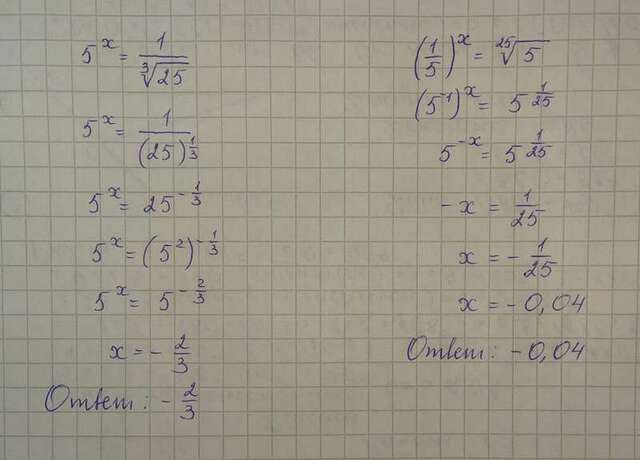 5^x = 1/∛25
5^x = 1/(25)^(1/3)
5^x = 25^(-1/3)
5^x = (5^2)^(-1/3)
5^x = 5^(-2/3)
x = -2/3
Ответ: -2/3
(1/5)^x = ²⁵√5
(5^-1)^x = 5^(1/25)
5^-x = 5^(1/25)
-x = 1/25
x = -1/25
x = -0,04
Ответ: -0,04